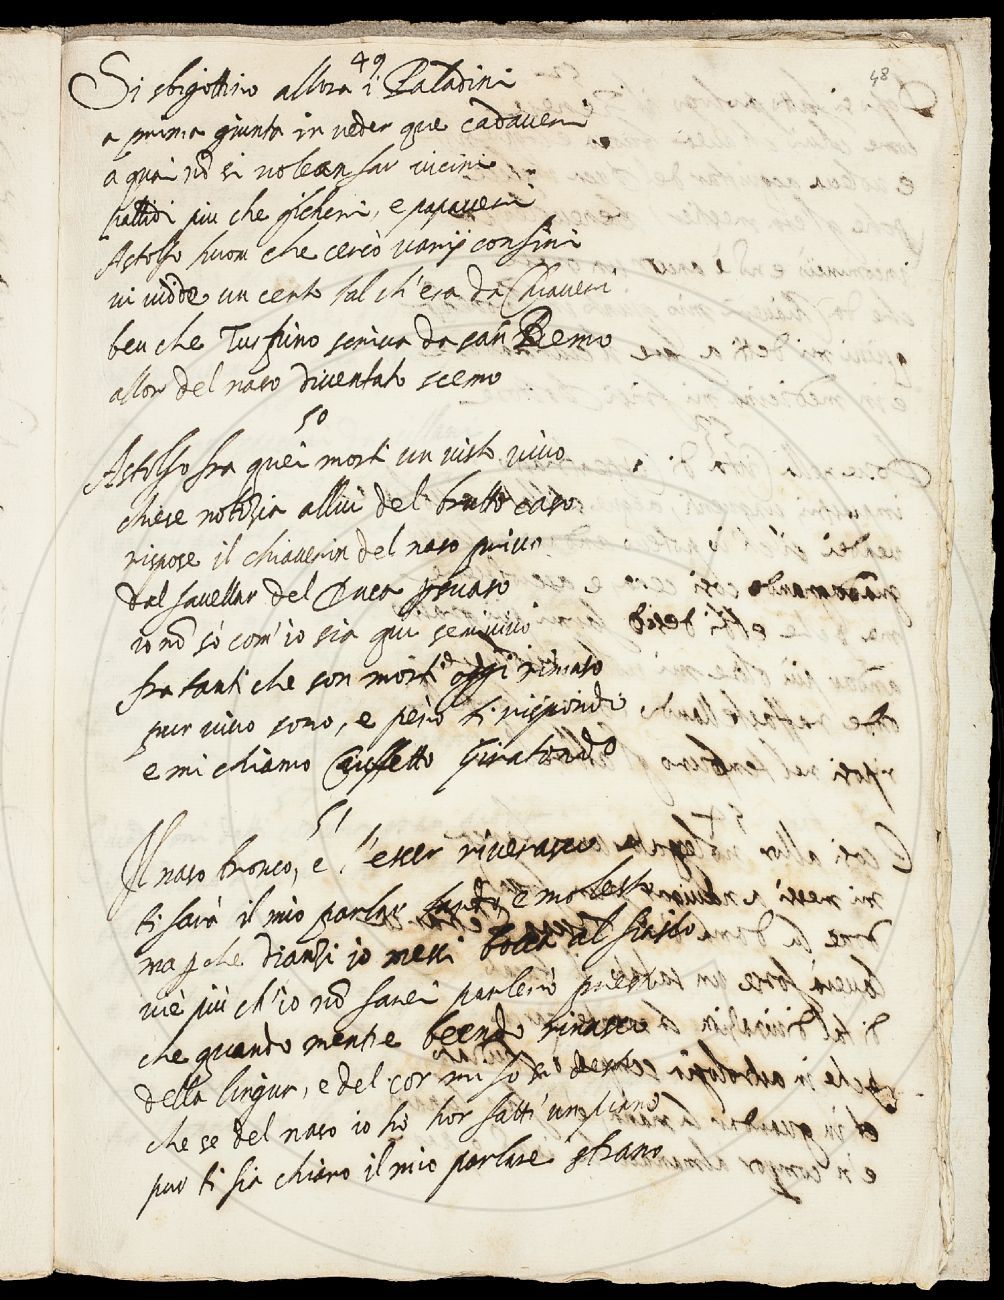 48
49
Si sbigottiro allora i Paladini
a prima giunta in veder que cadaveri
a quai nõ si volean far vicini
pallidi piu che gicheri, e papaveri
Astolfo huom che cercò varij confini
vi vidde un certo tal ch'era da Chiaveri
ben che Turpino scriva da san Remo
allor del naso diventato scemo
50
Astolfo fra quei morti un visto vivo
chiese notitia allui del brutto caso
rispose il chiaverin del naso privo
dal favellar del Duca persuaso
io nõ sò com'io sia qui semivivo
fra tanti che son morti oggi rimaso
pur vivo sono, e però ti rispondo
e mi chiamo Ciuffetto Giratondo
51
Il naso tronco, e l'esser
ti farà il mio parlar tardo, e molesto
ma pche dianzi io messi bocca al fiasco
vie più ch'io nõ farei parlerò presto
che quando mentre beendo rinasco
della lingua, e del cor mi fo
che se del naso io hò hor fatt'un piano
pur ti fia chiaro il mio parlare strano